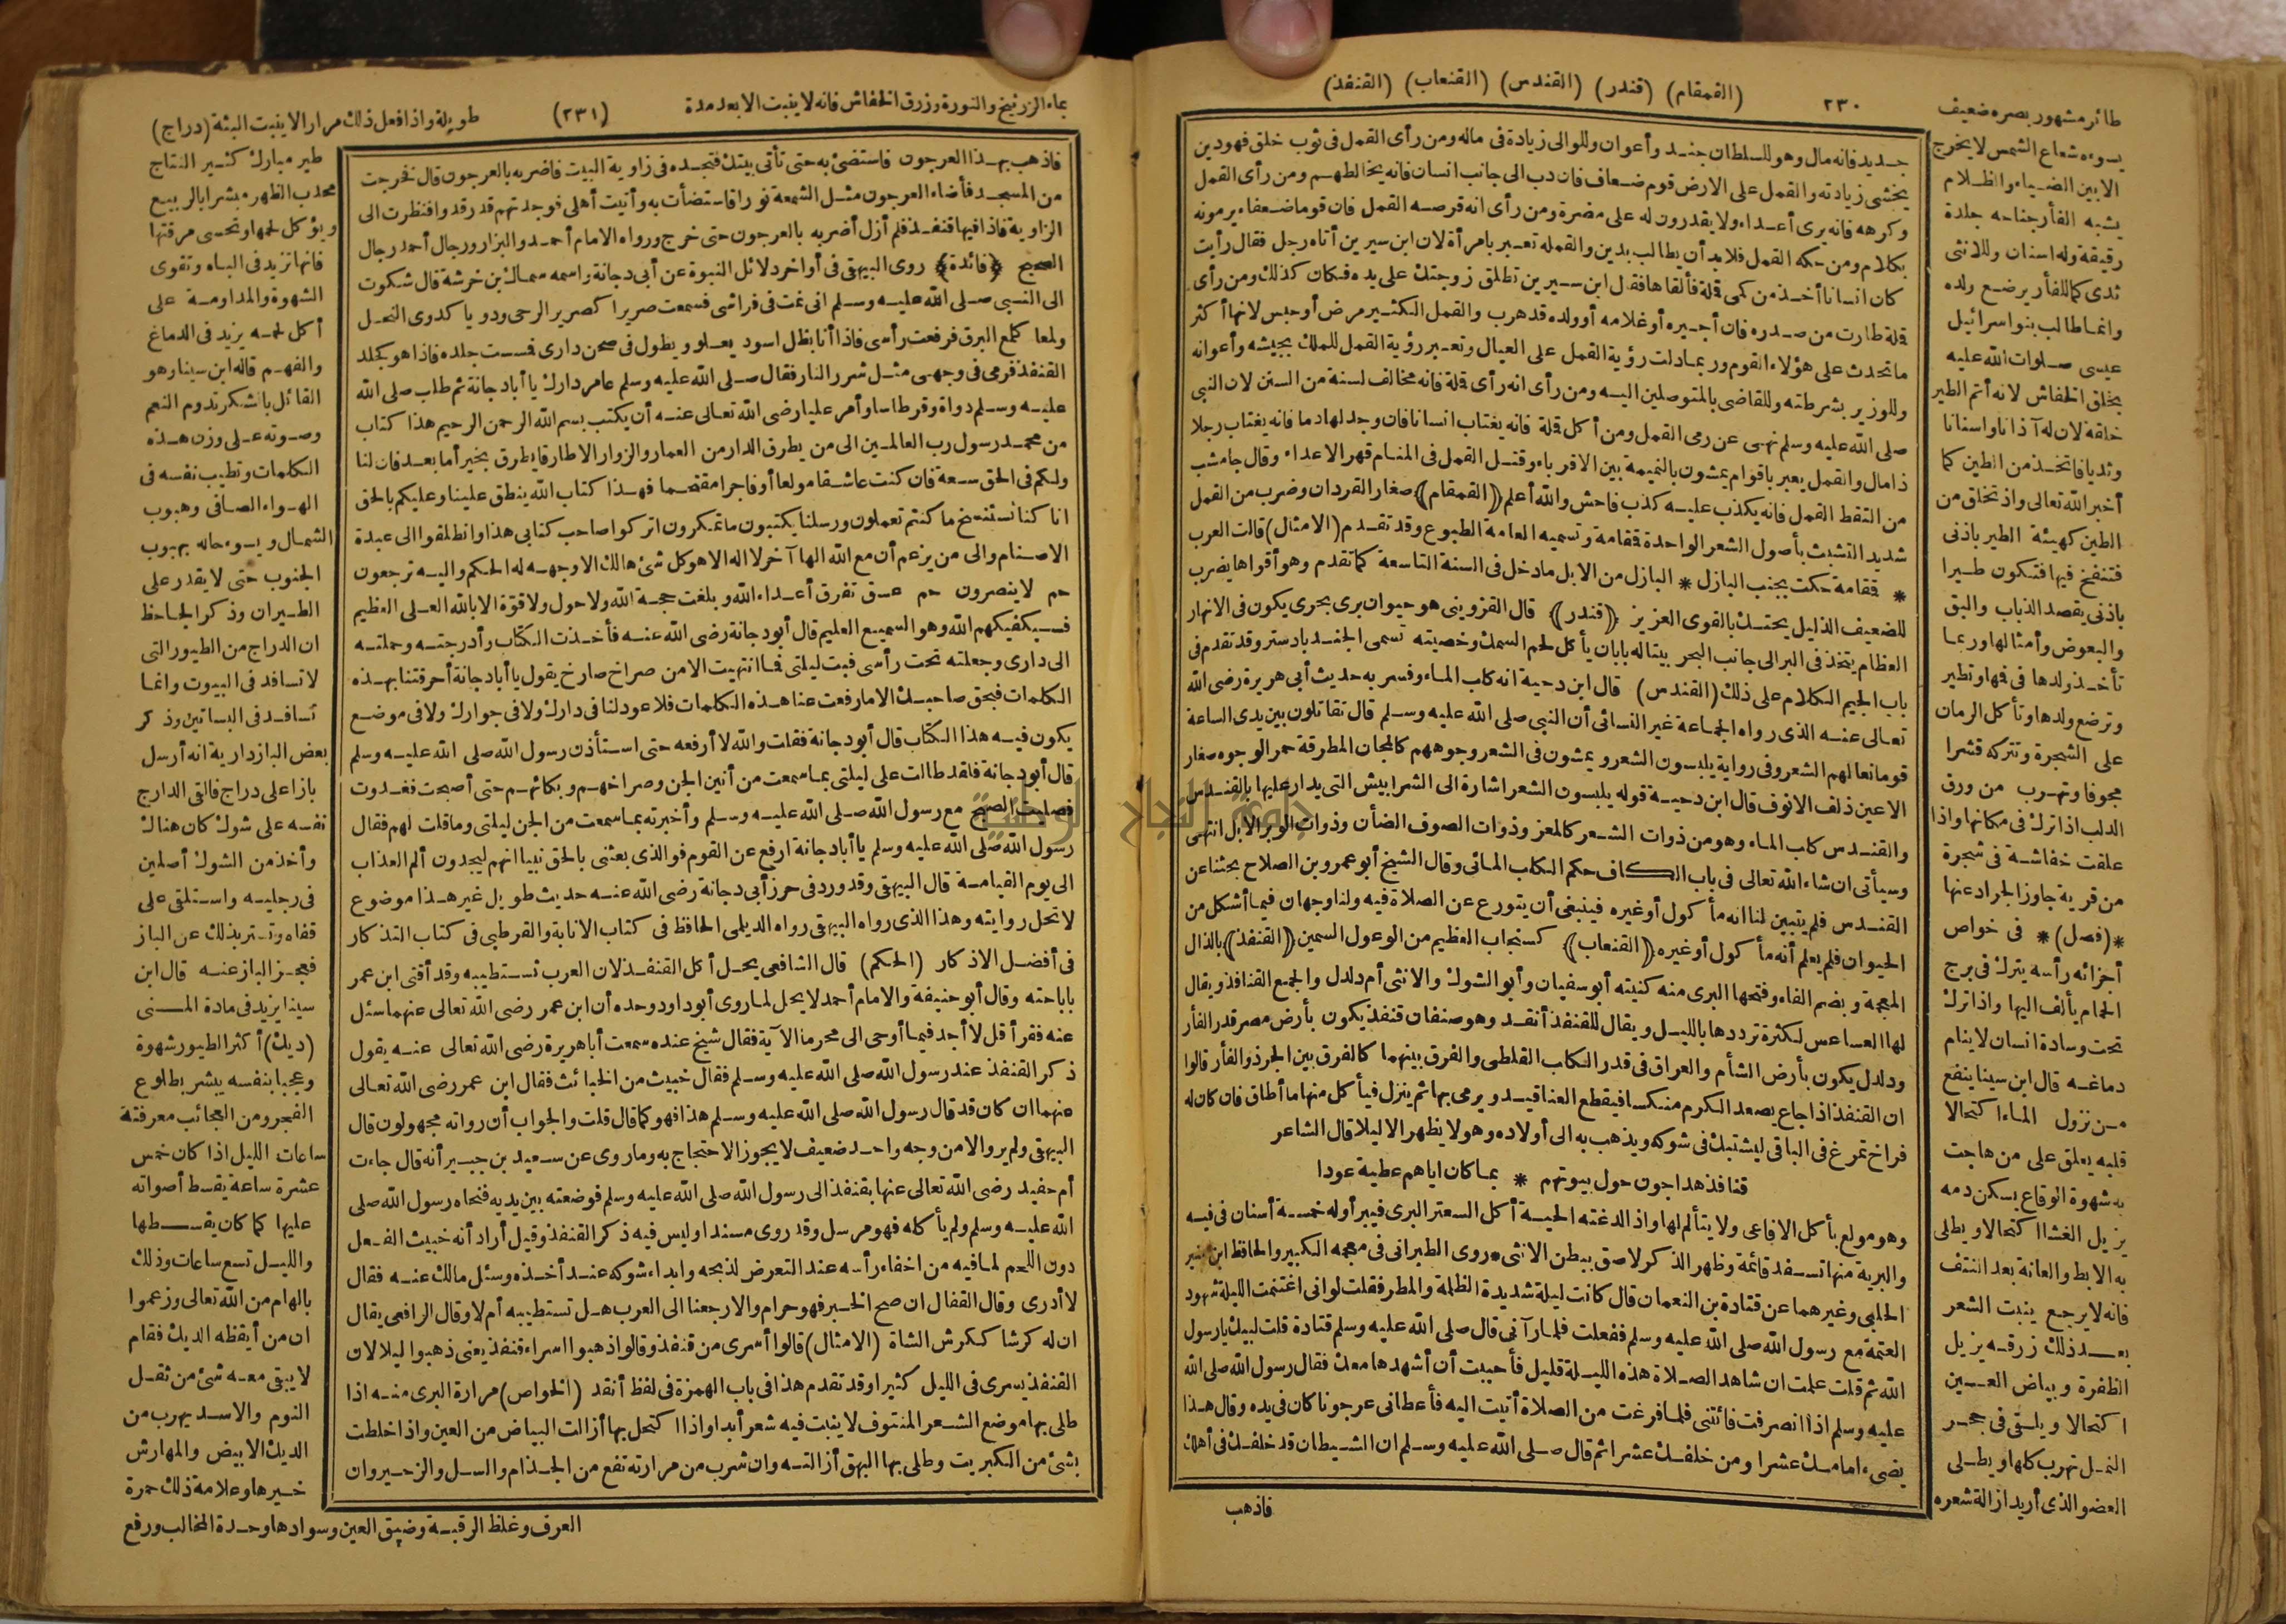 (القمقام) (قندر) (القندس) (القنعاب) (القنفذ)
٢٣٠
جديد فانه مال وهو للسلطان جند وأعوان وللوالى زيادة فى ماله ومن رأى القمل فى ثوب خلق فهو دين
يخشى زيادته والقمل على الارض قوم ضعاف فان دب الى جانب انسان فانه يخالطهم ومن رأى القمل
وكرهه فانه يرى أعداء ولا يقدرون له على مضرة ومن رأى انه قرصه القمل فان قوما ضعفاء يرمونه
بكلام ومن حكه القمل فلا بد أن يطالب بدين والقملة تعبر بامرأة لان ابن سيرين أتاه رجل فقال رأيت
كان انسانا أخذ من كمى قملة فألقاها فقال ابن سيرين تطلق زوجتك على يده فكان كذلك ومن رأى
قملة طارت من صدره فان أجيره أو غلامه أو ولده قد هرب والقمل الكثير مرض أو حبس لانها أكثر
ما تحدث على هؤلاء القوم وربما دلت رؤية القمل على العيال وتعبر رؤية القمل للملك بجيشه وأعوانه
وللوزير بشرطته وللقاضى بالمتوصلين اليه ومن رأى انه رأى قملة فانه مخالف لسنة من السنن لان النبى
صلى الله عليه وسلم نهى عن رمى القمل ومن أكل قملة فانه يغتاب انسانا فان وجد لها دما فانه يغتاب رجلا
ذا مال والقمل يعبر باقوام يمشون بالنميمة بين الاقرباء وقتل القمل فى المنام قهر الاعداء وقال جامشب
من التقط القمل فانه يكذب عليه كذب فاحش والله أعلم ﴿القمقام﴾ صغار القردان وضرب من القمل
شديد التشبث بأصول الشعر الواحدة قمقامة وتسميه العامة الطبوع وقد تقدم (الامثال) قالت العرب
* قمقامة حكت بجنب البازل * البازل من الابل ما دخل فى السنة التاسعة كما تقدم وهو أقواها يضرب
للضعيف الذليل يحتك بالقوى العزيز ﴿قندر﴾ قال القزوينى هو حيوان برى بحرى يكون فى الانهار
العظام يتخذ فى البر الى جانب البحر بيتا له بابان يأكل لحم السمك وخصيته تسمى الجندبادستر وقد تقدم فى
باب الجيم الكلام على ذلك (القندس) قال ابن دحية انه كلب الماء وفسر به حديث أبى هريرة رضى الله
تعالى عنه الذى رواه الجماعة غير النسائى أن النبى صلى الله عليه وسلم قال تقاتلون بين يدى الساعة
قوما نعالهم الشعر وفى رواية يلبسون الشعر ويمشون فى الشعر وجوههم كالمجان المطرقة حمر الوجوه صغار
الاعين ذلف الانوف قال ابن دحية قوله يلبسون الشعر اشارة الى الشرابيش التى يدار عليها بالقندس
والقندس كلب الماء وهو من ذوات الشعر كالمعز وذوات الصوف الضأن وذوات الوبر الابل انتهى
وسيأتى ان شاء الله تعالى فى باب الكاف حكم الكلب المائى وقال الشيخ أبو عمرو بن الصلاح بحثنا عن
القندس فلم يتبين لنا انه مأكول أو غيره فينبغى أن يتورع عن الصلاة فيه ولنا وجهان فيما أشكل من
الحيوان فلم يعلم أنه مأكول أو غيره ﴿القنعاب﴾ كسنجاب العظيم من الوعول السمين ﴿القنفذ﴾ بالذال
المعجمة وبضم الفاء وفتحها البرى منه كنيته أبو سفيان وأبو الشوك والانثى أم دلدل والجمع القنافذ ويقال
لها العساعس لكثرة ترددها بالليل ويقال للقنفذ أنقد وهو صنفان قنفذ يكون بأرض مصر قدر الفأر
ودلدل يكون بأرض الشأم والعراق فى قدر الكلب القلطى والفرق بينهما كالفرق بين الجرذ والفأر قالوا
ان القنفذ اذا جاع يصعد الكرم منكسا فيقطع العناقيد ويرمى بها ثم ينزل فيأكل منها ما أطاق فان كان له
فراخ تمرغ فى الباقى ليشتبك فى شوكه ويذهب به الى أولاده وهو لا يظهر الا ليلا قال الشاعر
قنافذ هداجون حول بيوتهم * بما كان اياهم عطية عودا
وهو مولع بأكل الافاعى ولا يتألم لها واذا لدغته الحية أكل السعتر البرى فيبرأ وله خمسة أسنان فى فيه
والبرية منها تسفد قائمة وظهر الذكر لاصق ببطن الانثى * روى الطبرانى فى معجمه الكبير والحافظ ابن منير
الحلبى وغيرهما عن قتادة بن النعمان قال كانت ليلة شديدة الظلمة والمطر فقلت لو انى اغتنمت الليلة شهود
العتمة مع رسول الله صلى الله عليه وسلم ففعلت فلما رآنى قال صلى الله عليه وسلم قتادة قلت لبيك يا رسول
الله ثم قلت علمت ان شاهد الصلاة هذه الليلة قليل فأحببت أن أشهدها معك فقال رسول الله صلى الله
عليه وسلم اذا انصرفت فائتنى فلما فرغت من الصلاة أتيت اليه فأعطانى عرجونا كان فى يده وقال هذا
يضىء امامك عشرا ومن خلفك عشرا ثم قال صلى الله عليه وسلم ان الشيطان قد خلفك فى أهلك
فاذهب
طائر مشهور بصره ضعيف
يسوءه شعاع الشمس لا يخرج
الا بين الضياء والظلام
يشبه الفأر جناحه جلدة
رقيقة وله اسنان وللانثى
ثدى كما للفأر يرضع ولده
وانما طالب بنو اسرائيل
عيسى صلوات الله عليه
بخلق الخفاش لانه أتم الطير
خلقة لان له آذانا واسنانا
وثديا فاتخذ من الطين كما
أخبر الله تعالى واذ تخلق من
الطين كهيئة الطير باذنى
فتنفخ فيها فتكون طيرا
باذنى يقصد الذباب والبق
والبعوض وأمثالها وربما
تأخذ ولدها فى فمها وتطير
وترضع ولدها وتأكل الرمان
على الشجرة وتتركه قشرا
مجوفا وتهرب من ورق
الدلب اذا ترك فى مكانها واذا
علقت خفاشة فى شجرة
من قرية جاوز الجراد عنها
*(فصل)* فى خواص
أجزائه رأسه يترك فى برج
الحمام يألف اليها واذا ترك
تحت وسادة انسان لا ينام
دماغه قال ابن سينا ينفع
من نزول الماء اكتحالا
قلبه يعلق على من هاجت
به شهوة الوقاع يسكن دمه
يزيل الغشا اكتحالا ويطلى
به الابط والعانة بعد النتف
فانه لا يرجع ينبت الشعر
بعد ذلك زرقه يزيل
الظفرة وبياض العين
اكتحالا ويلقى فى جحر
النمل تهرب كلها ويطلى
العضو الذى أريد ازالة شعره
بماء الزرنيخ والنورة وزرق الخفاش فانه لا ينبت الا بعد مدة
(٢٣١)
طويلة واذا فعل ذلك مرارا لا ينبت البتة (دراج)
فاذهب بهذا العرجون فاستضئ به حتى تأتى بيتك فتجده فى زاوية البيت فاضربه بالعرجون قال فخرجت
من المسجد فأضاء العرجون مثل الشمعة نورا فاستضأت به وأتيت أهلى فوجدتهم قد رقدوا فنظرت الى
الزاوية فاذا فيها قنفذ فلم أزل أضربه بالعرجون حتى خرج ورواه الامام أحمد والبزار ورجال أحمد رجال
الصحيح ﴿فائدة﴾ روى البيهقى فى أواخر دلائل النبوة عن أبى دجانة واسمه سماك بن خرشة قال شكوت
الى النبى صلى الله عليه وسلم انى نمت فى فراشى فسمعت صريرا كصرير الرحى ودويا كدوى النحل
ولمعا كلمع البرق فرفعت رأسى فاذا أنا بظل اسود يعلو ويطول فى صحن دارى فمست جلده فاذا هو كجلد
القنفذ فرمى فى وجهى مثل شرر النار فقال صلى الله عليه وسلم عامر دارك يا أبا دجانة ثم طلب صلى الله
عليه وسلم دواة وقرطاسا وأمر عليا رضى الله تعالى عنه أن يكتب بسم الله الرحمن الرحيم هذا كتاب
من محمد رسول رب العالمين الى من يطرق الدار من العمار والزوار الا طارقا يطرق بخير أما بعد فان لنا
ولكم فى الحق سعة فان كنت عاشقا مولعا أو فاجرا مقتحما فهذا كتاب الله ينطق علينا وعليكم بالحق
انا كنا نستنسخ ما كنتم تعملون ورسلنا يكتبون ما تمكرون اتركوا صاحب كتابى هذا وانطلقوا الى عبدة
الاصنام والى من يزعم أن مع الله الها آخر لا اله الا هو كل شئ هالك الا وجهه له الحكم واليه ترجعون
حم لا ينصرون حم عسق تفرق أعداء الله وبلغت حجة الله ولا حول ولا قوة الا بالله العلى العظيم
فسيكفيكهم الله وهو السميع العليم قال أبو دجانة رضى الله عنه فأخذت الكتاب وأدرجته وحملته
الى دارى وجعلته تحت رأسى فبت ليلتى فما انتبهت الا من صراخ صارخ يقول يا أبا دجانة أحرقتنا بهذه
الكلمات فبحق صاحبك الا ما رفعت عنا هذه الكلمات فلا عود لنا فى دارك ولا فى جوارك ولا فى موضع
يكون فيه هذا الكتاب قال أبو دجانة فقلت والله لا أرفعه حتى استأذن رسول الله صلى الله عليه وسلم
قال أبو دجانة فلقد طالت على ليلتى بما سمعت من أنين الجن وصراخهم وبكائهم حتى أصبحت فغدوت
فصليت الصبح مع رسول الله صلى الله عليه وسلم وأخبرته بما سمعت من الجن ليلتى وما قلت لهم فقال
رسول الله صلى الله عليه وسلم يا أبا دجانة ارفع عن القوم فوالذى بعثنى بالحق نبيا انهم ليجدون ألم العذاب
الى يوم القيامة قال البيهقى وقد ورد فى حرز أبى دجانة رضى الله عنه حديث طويل غير هذا موضوع
لا تحل روايته وهذا الذى رواه البيهقى رواه الديلمى الحافظ فى كتاب الانابة والقرطبى فى كتاب التذكار
فى أفضل الاذكار (الحكم) قال الشافعى يحل أكل القنفذ لان العرب تستطيبه وقد أفتى ابن عمر
باباحته وقال أبو حنيفة والامام أحمد لا يحل لما روى أبو داود وحده أن ابن عمر رضى الله تعالى عنهما سئل
عنه فقرأ قل لا أجد فيما أوحى الى محرما الآية فقال شيخ عنده سمعت أبا هريرة رضى الله تعالى عنه يقول
ذكر القنفذ عند رسول الله صلى الله عليه وسلم فقال خبيث من الخبائث فقال ابن عمر رضى الله تعالى
عنهما ان كان قد قال رسول الله صلى الله عليه وسلم هذا فهو كما قال قلت والجواب أن رواته مجهولون قال
البيهقى ولم يرو الا من وجه واحد ضعيف لا يجوز الاحتجاج به وما روى عن سعيد بن جبير أنه قال جاءت
أم حفيد رضى الله تعالى عنها بقنفذ الى رسول الله صلى الله عليه وسلم فوضعته بين يديه فنحاه رسول الله صلى
الله عليه وسلم ولم يأكله فهو مرسل وقد روى مسندا وليس فيه ذكر القنفذ وقيل أراد أنه خبيث الفعل
دون اللحم لما فيه من اخفاء رأسه عند التعرض لذبحه وابداء شوكه عند أخذه وسئل مالك عنه فقال
لا أدرى وقال القفال ان صح الخبر فهو حرام والا رجعنا الى العرب هل تستطيبه أم لا وقال الرافعى يقال
ان له كرشا ككرش الشاة (الامثال) قالوا أسرى من قنفذ وقالوا ذهبوا اسراء قنفذ يعنى ذهبوا ليلا لان
القنفذ يسرى فى الليل كثيرا وقد تقدم هذا فى باب الهمزة فى لفظ أنقد (الخواص) مرارة البرى منه اذا
طلى بها موضع الشعر المنتوف لا ينبت فيه شعر أبدا واذا اكتحل بها أزالت البياض من العين واذا خلطت
بشئ من الكبريت وطلى بها البهق أزالته وان شرب من مرارته نفع من الجذام والسل والزحير وان
طير مبارك كثير النتاج
محدب الظهر مبشر بالربيع
ويؤكل لحمها وتحسى مرقتها
فانها تزيد فى الباه وتقوى
الشهوة والمداومة على
أكل لحمه يزيد فى الدماغ
والفهم قاله ابن سينا وهو
القائل بالشكر تدوم النعم
وصوته على وزن هذه
الكلمات وتطيب نفسه فى
الهواء الصافى وهبوب
الشمال ويسوء حاله بهبوب
الجنوب حتى لا يقدر على
الطيران وذكر الجاحظ
ان الدراج من الطيور التى
لا تسافد فى البيوت وانما
تسافد فى البساتين وذكر
بعض البازدارية انه أرسل
بازا على دراج فالقى الدارج
نفسه على شوك كان هناك
وأخذ من الشوك أصلين
فى رجليه واستلقى على
قفاه وتستر بذلك عن الباز
فعجز الباز عنه قال ابن
سينا يزيد فى مادة المنى
(ديك) أكثر الطيور شهوة
وعجبا بنفسه يبشر بطلوع
الفجر ومن العجائب معرفتة
ساعات الليل اذا كان خمس
عشرة ساعة يقسط أصواته
عليها كما كان يقسطها
والليل تسع ساعات وذلك
بالهام من الله تعالى وزعموا
ان من أيقظه الديك فقام
لا يبقى معه شئ من ثقل
النوم والاسد يهرب من
الديك الابيض والمهارش
خيرها وعلامة ذلك حمرة
العرف وغلظ الرقبة وضيق العين وسوادها وحدة المخالب ورفع
جامعة النجاح الوطنية